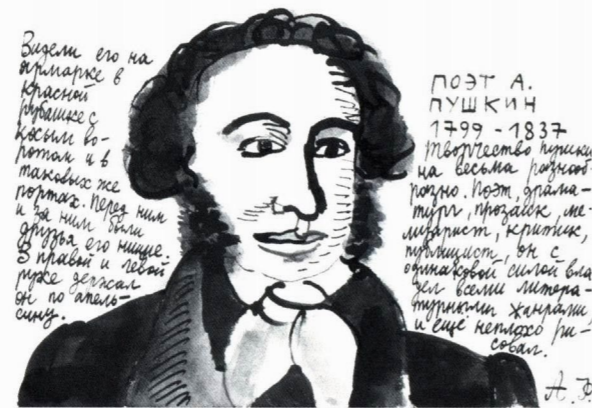 Видели его на
ярмарке в
красной
рубашке с
косым во-
ротом и в
таковых же
портах. Перед ним
и за ним были
друзья его нищие.
В правой и левой
руке держал
он по апель-
сину.
ПОЭТ А.
ПУШКИН
1799 - 1837
Творчество Пушки
на весьма разнооб-
разно. Поэт, драма-
тург, прозаик, ме-
муарист, критик,
публицист, он с
одинаковой силой вла
дел всеми литера-
турными жанрами,
и ещё неплохо ри-
совал.
А.Ф.